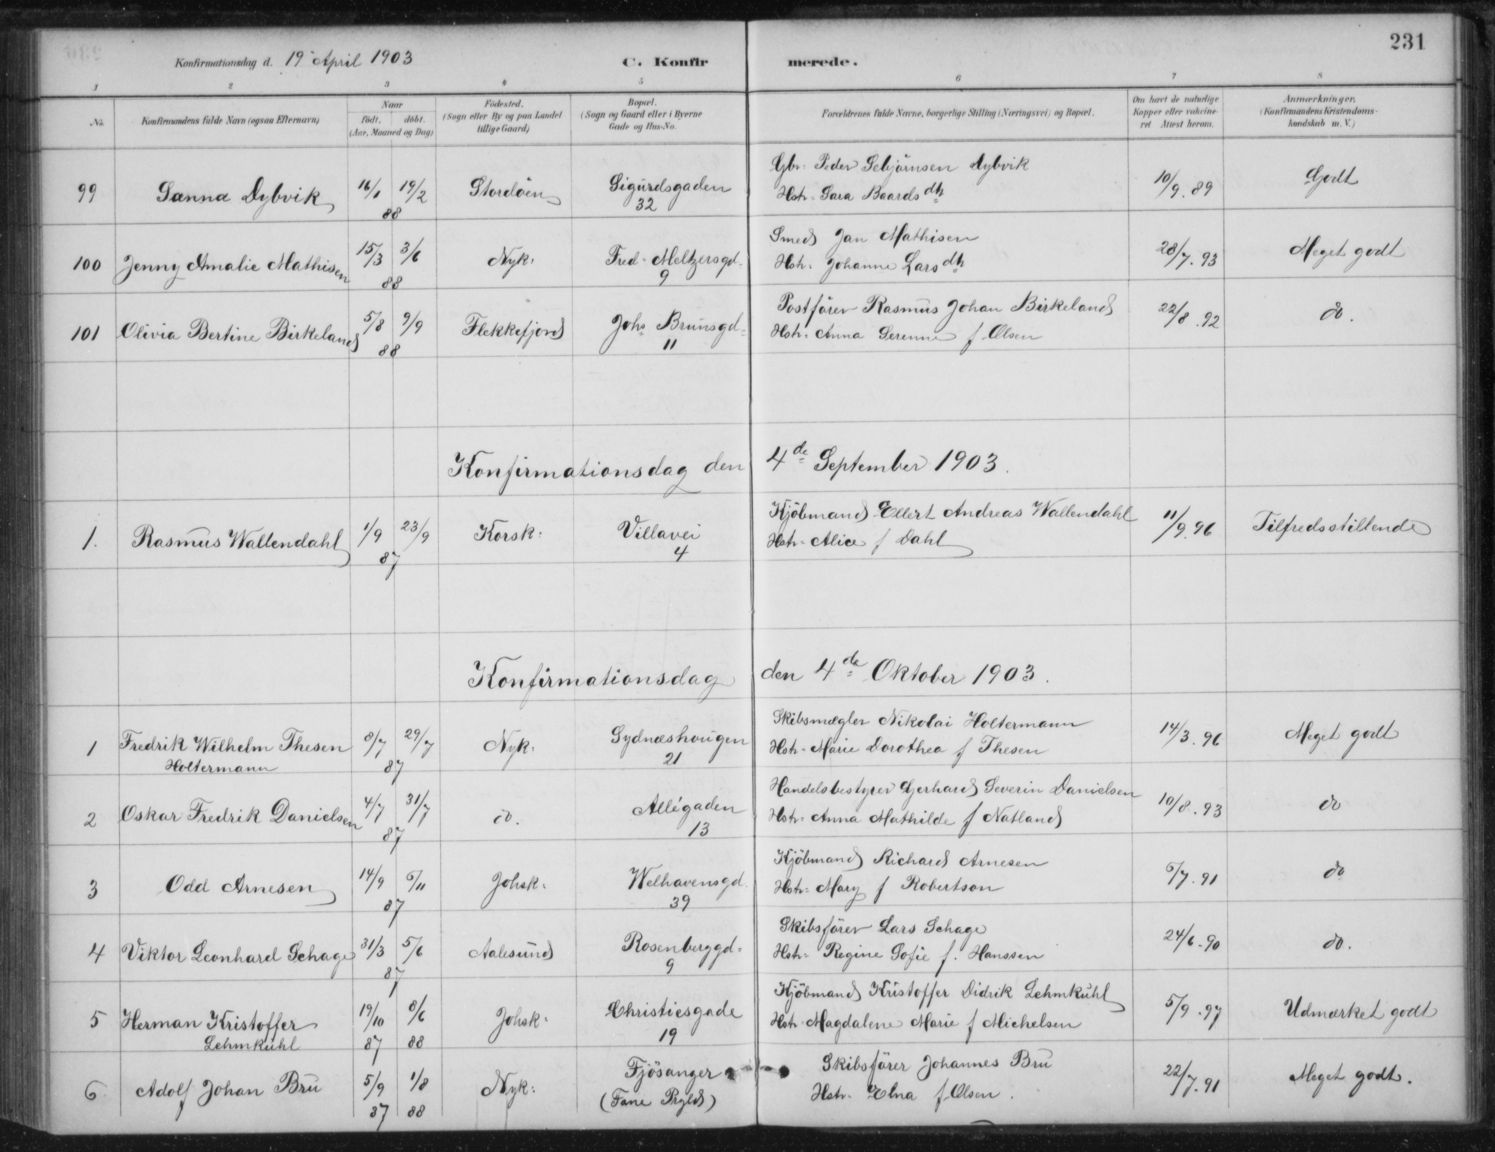 231
Konfirmationsdag d. 19 April 1903 C. Konfirmerede.
1 2 3 4 5 6 7 8
No. Konfirmandens fulde Navn (ogsaa Efternavn) Naar født. døbt. (Aar, Maaned og Dag) Fødested. (Sogn eller By og paa Landet tillige Gaard) Bopæl. (Sogn og Gaard eller i Byerne Gade og Hus-No. Forældrenes fulde Navne, borgerlige Stilling (Næringsvei) og Bopæl. Om havt de naturlige Kopper eller vaccineret Attest herom. Anmærkninger. (Konfirmandens Kristendomskundskab m. V.)
99 Sanna Dybvik 16/1 19/2 88 Stordøen Sigurdsgaden 32 Gbr. Peder Sebjørnsen Dybvik
Hstr. Sara Baards dtr 10/9. 89 Godt
100 Jenny Amalie Mathisen 15/3 3/6 88 Nyk. Fred. Meltzersgd. 9 Smed Jan Mathisen
Hstr. Johanne Lars dtr 28/7. 93 Meget godt
101 Olivia Bertine Birkeland 5/8 9/9 88 Flekkefjord Johs Brunsgd. 11 Postfører Rasmus Johan Birkeland
Hstr. Anna Serenne f Olsen 22/8. 92 do.
Konfirmationsdag den 4de September 1903.
1. Rasmus Wallendahl 1/9 23/9 87 Korsk. Villavei 4 Kjøbmand Ellert Andreas Wallendahl
Hstr. Alice f Dahl 11/9. 96 Tilfredsstillende
Konfirmationsdag den 4de Oktober 1903.
1 Fredrik Wilhelm Thesen Holtermann 8/7 29/7 87 Nyk. Sydnæshougen 21 Skibsmægler Nikolai Holtermann
Hstr. Marie Dorothea f Thesen 14/3. 96 Meget godt
2 Oskar Fredrik Danielsen 4/7 31/7 87 do. Allégaden 13 Handelsbestyrer Gerhard Severin Danielsen
Hstr. Anna Mathilde f Natland 10/8. 93 do
3 Odd Arnesen 14/9 6/11 87 Johsk. Welhavensgd. 39 Kjøbmand Richard Arnesen
Hstr. Mary f Robertson 6/7. 91 do
4 Viktor Leonhard Schage 31/3 5/6 87 Aalesund Rosenberggd. 9 Skibsfører Lars Schage
Hstr. Regine Sofie f. Hanssen 24/6. 90 do.
5 Herman Kristoffer Lehmkuhl 19/10 87 8/6 88 Johsk. Christiesgade 19 Kjøbmand Kristoffer Didrik Lehmkuhl
Hstr. Magdalene Marie f Michelsen 5/9. 97 Udmærket godt
6 Adolf Johan Bru 5/9 87 1/8 88 Nyk. Fjøsanger (Fane Prgld) Skibsfører Johannes Bru
Hstr. Elna f Olsen. 22/7. 91 Meget godt.